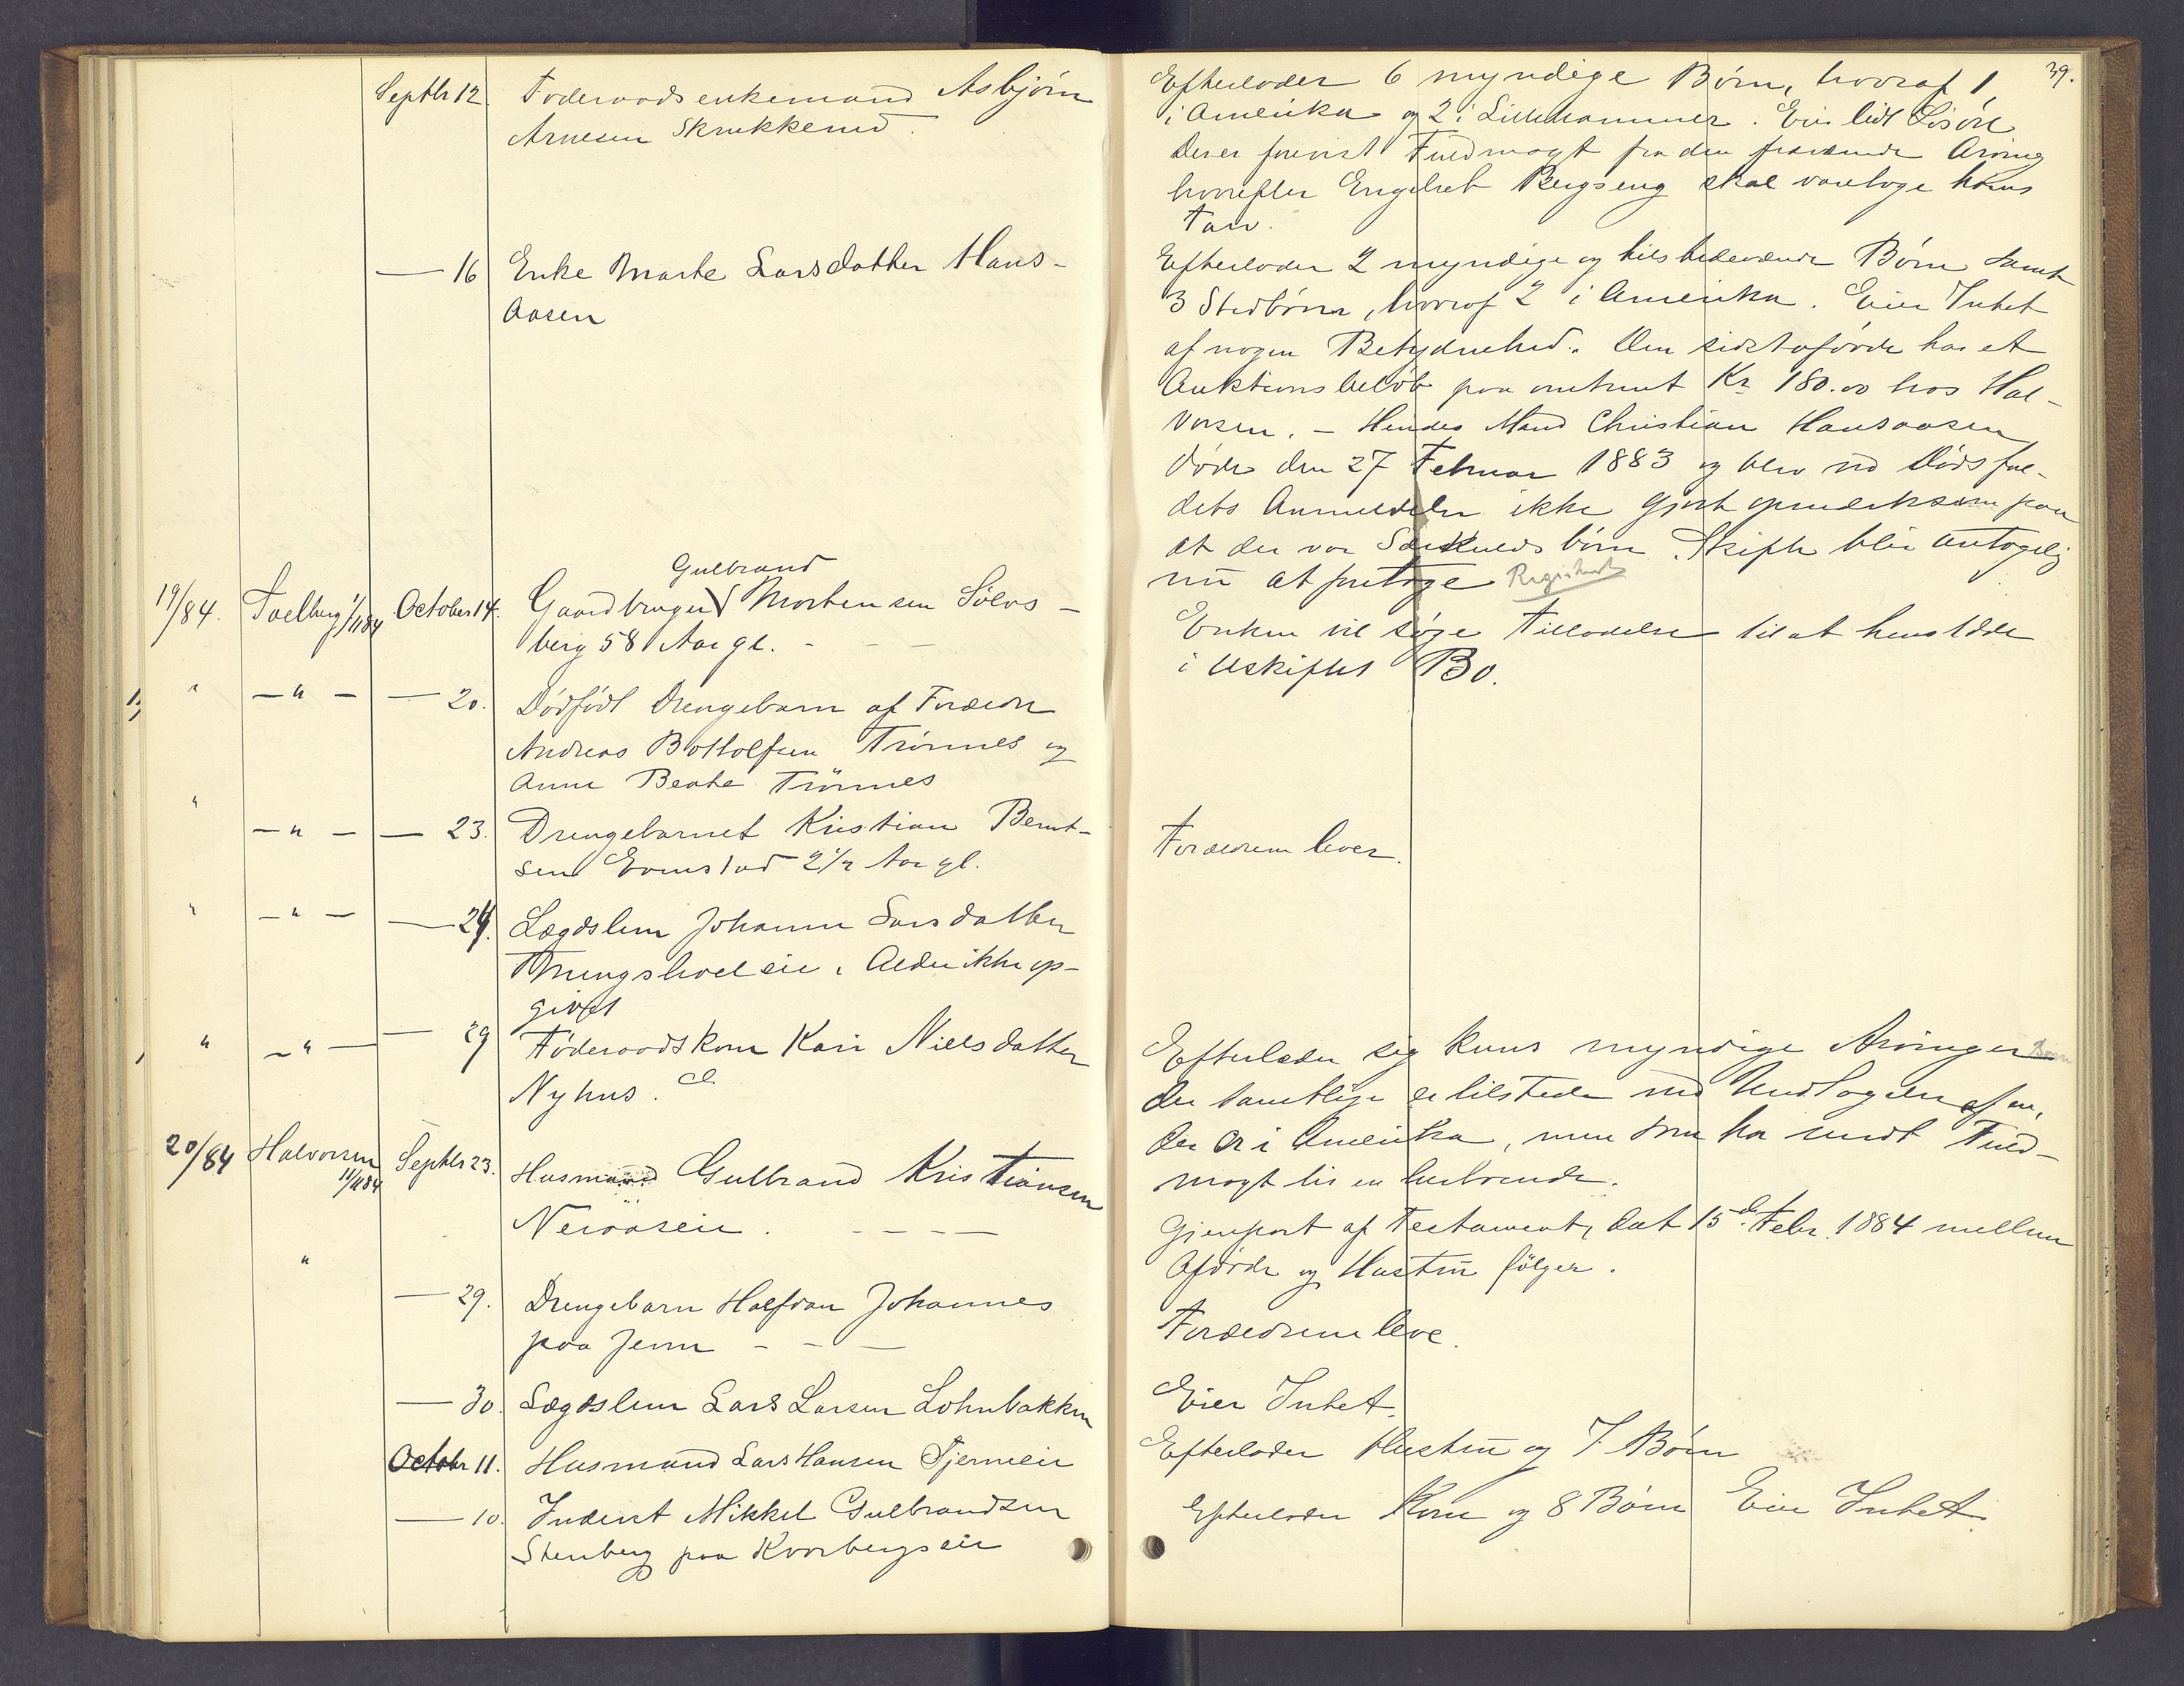 Septbr 12. Føderaadsenkemand Asbjørn
Arnesen Skrukkerud.
— 16 Enke Marte Larsdatter Hans-
aasen
Gulbrand
19/84. Toelberg 1/11 84 October 14. Gaardbruger Mortensen Sølvs-
berg 58 Aar gl. - - -
" — " — — 20. Dødfødt Drengebarn af Forældre
Andreas Bottolfsen Trønnes og
Anne Beate Trønnes
" — " — — 23. Drengebarnet Kristian Bernt-
sen Evenstad 2 1/2 Aar gl.
" — " — — 24. Lægdslem Johanne Larsdatter
eie. Alder ikke op-
givet
" — " — — 29 Føderaadskone Kari Nielsdatter
Nyhus.
20/84 Halvorsen 11/11 84 Septbr 23. Husmand Gulbrand Kristiansen
Neraaseie. - - - -
"
— 29. Drengebarn Halfdan Johannes
paa Jevne - - -
— 30. Lægdslem Lars Larsen Lohnbakken
Octobr 11. Husmand Lars Hansen Tjerneie
— 10. Inderst Mikkel Gulbrandsen
Stenberg paa Kvarbergseie
39.
Efterlader 6 myndige Børn, hvoraf 1
i Amerika og 2 i Lillehammer. Eier lidt Løsøre
Der er forevist Fuldmagt fra den fraværende Arving
hvorefter Engebret Bergseng skal varetage hans
Tarv.
Efterlader 2 myndige og tilstedeværende Børn samt
3 Stedbørn, hvoraf 2 i Amerika. Eier Intet
af nogen Betydenhed. Den sidstafdøde har et
Auktionsbeløb paa omtrent Kr 180.00 hos Hal-
vorsen. - Hendes Mand Christian Hansaasen
døde den 27 Februar 1883 og blev ved Dødsfal-
dets Anmeldelse ikke gjort opmerksom paa
at der var Særkuldsbørn. Skifte blir antagelig
nu at foretage Registreret
Enken vil søge Tilladelse til at hensidde
i Uskiftet Bo.
Forældrene lever.
Efterlader sig kuns myndige Arvinger Børn
der samtlige er tilstede med Undtagelse af en,
der er i Amerika, men som har sendt Fuld-
magt til en herboende.
Gjenpart af Testament, dat 15de Febr. 1884 mellem
Afdøde og Hustru følger.
Forældrene leve.
Eier Intet.
Efterlader Hustru og 7 Børn
Efterlader Kone og 8 Børn Eier Intet.